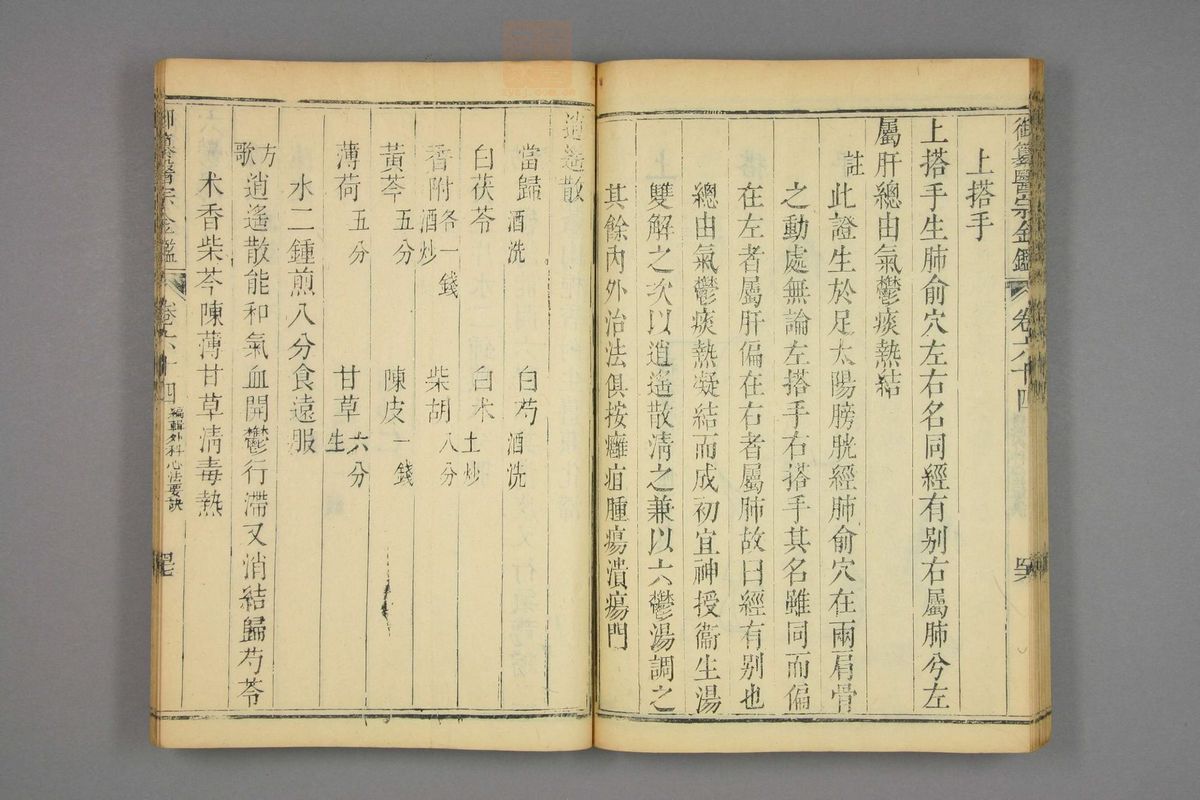 御纂醫宗金鑑 卷六十四
上搭手
上搭手生肺俞穴左右名同經有别右屬肺兮左
屬肝總由氣鬱痰熱結
註此證生於足太陽膀胱經肺俞穴在兩肩骨
之動處無論左搭手右搭手其名雖同而偏
在左者屬肝偏在右者屬肺故曰經有别也
總由氣鬱痰熱凝結而成初宜神授衞生湯
雙解之次以逍遙散清之兼以六鬱湯調之
其餘內外治法俱按癰疽腫瘍潰瘍門
逍遙散
當歸酒洗 白芍酒洗
白茯苓 白术土炒
香附酒炒各一錢 柴胡八分
黃芩五分 陳皮一錢
薄荷五分 甘草生六分
水二鍾煎八分食遠服
方歌逍遙散能和氣血開鬱行滯又消結歸芍苓
术香柴芩陳薄甘草清毒熱
御纂醫宗金鑑 卷六十四 編輯外科心法要訣